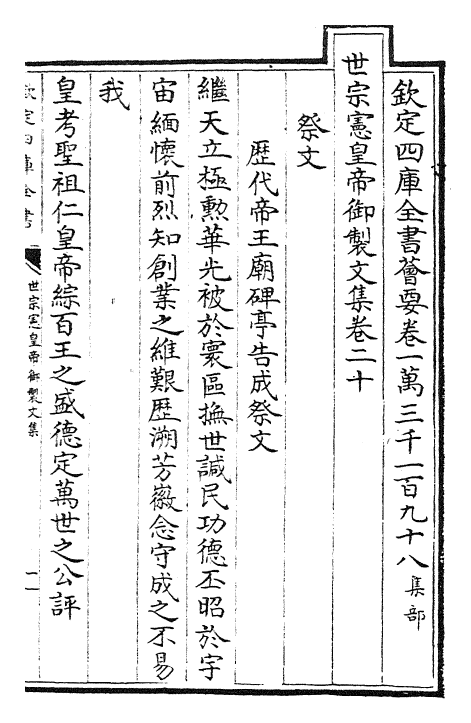 欽定四庫全書薈要卷一萬三千一百九十八 集部
世宗憲皇帝御製文集卷二十
祭文
歴代帝王廟碑亭告成祭文
繼天立極勲華光被於寰區撫世諴民功德丕昭於宇
宙緬懷前烈知創業之維艱歴溯芳徽念守成之不易
我
皇考聖祖仁皇帝綜百王之盛德定萬世之公評
欽定四庫全書
世宗憲皇帝御製文集
一